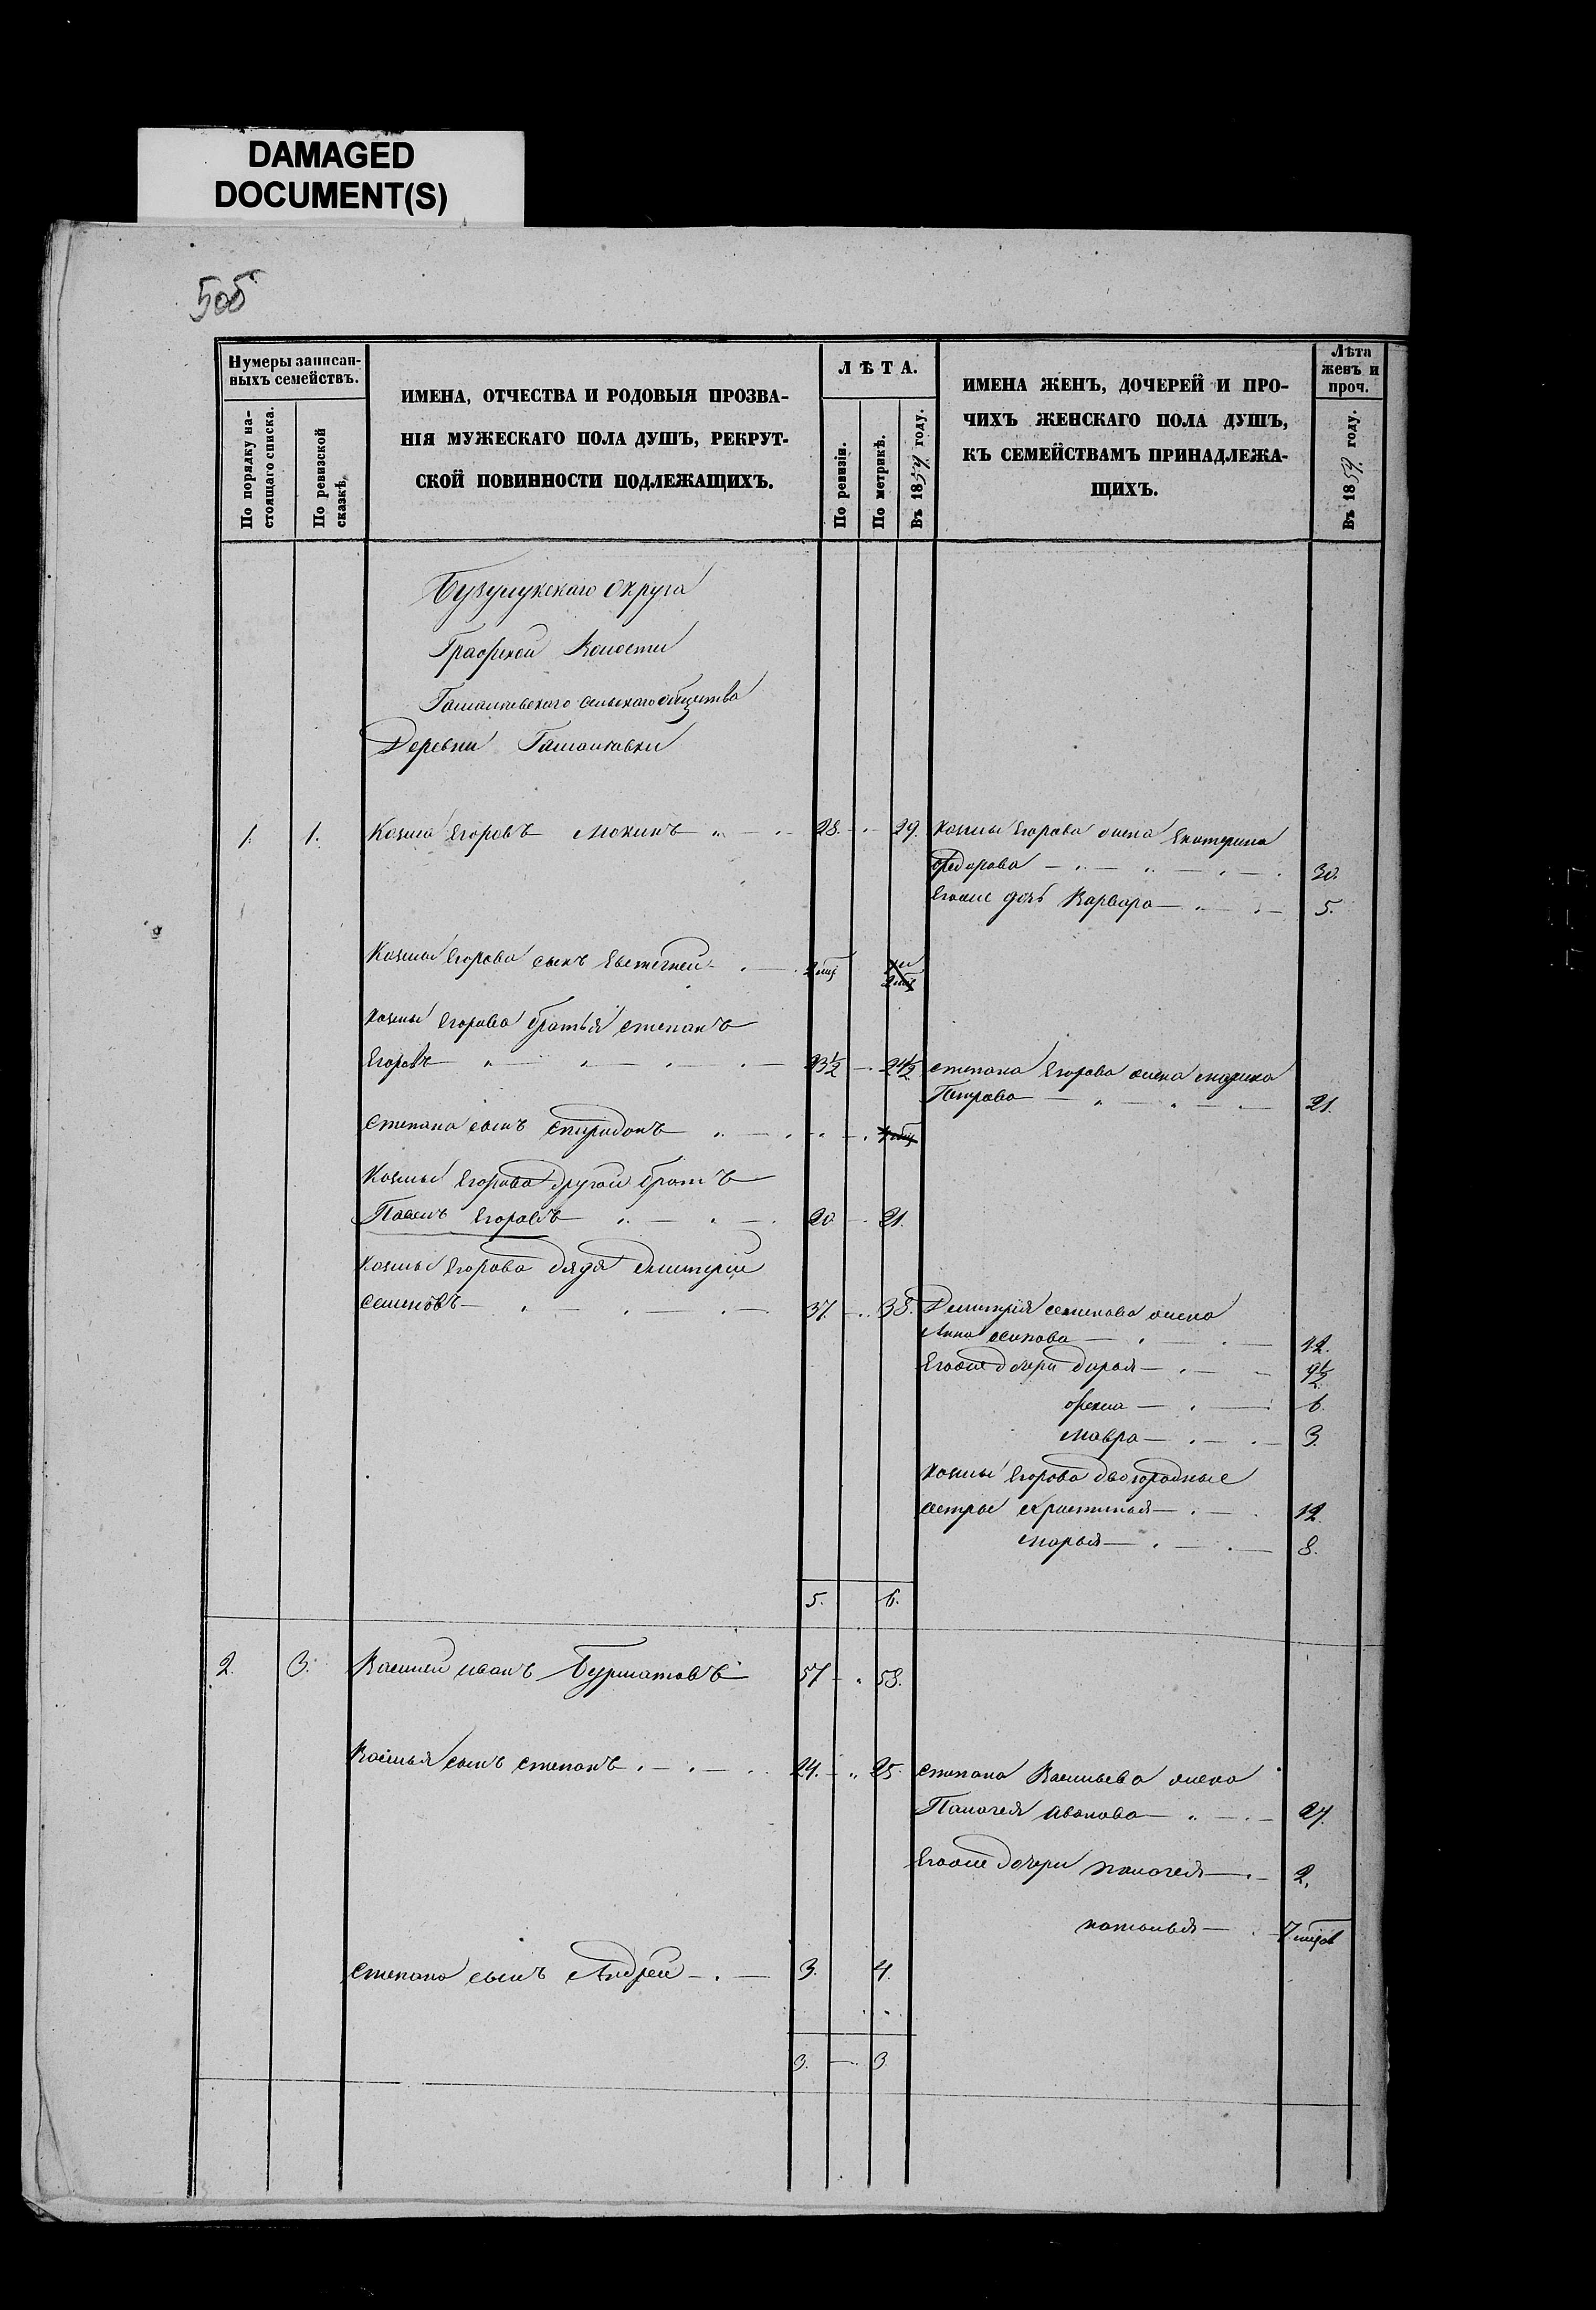 DAMAGED
DOCUMENT(S)
505
Нумеры записан-
ныхъ семействъ.
По порядку на-
стоящаго списка.
По ревизской
сказкѣ.
ИМЕНА, ОТЧЕСТВА И РОДОВЫЯ ПРОЗВА-
НІЯ МУЖЕСКАГО ПОЛА ДУШЪ, РЕКРУТ-
СКОЙ ПОВИННОСТИ ПОДЛЕЖАЩИХЪ.
ЛѢТА.
По ревизіи.
По метрикѣ.
Въ 1859 году.
ИМЕНА ЖЕНЪ, ДОЧЕРЕЙ И ПРО-
ЧИХЪ ЖЕНСКАГО ПОЛА ДУШЪ,
КЪ СЕМЕЙСТВАМЪ ПРИНАДЛЕЖА-
ЩИХЪ.
Лѣта
женъ и
проч.
Въ 1859 году.
Бузулукскаго Округа
Графской Волости
сельскаго общества
Деревни
1. 1. Козма Егоровъ Мокинъ 28. 29. Козмы Егорова жена Екатерина
Федорова 30.
Егоже дочь Варвара 5.
Козмы Егорова сынъ Евстегней
Козмы Егорова братья степанъ
Егоровъ 23½ 24½ степана Егорова жена марина
Петрова 21.
степана сынъ спиридонъ
Козмы Егорова другой братъ
Павелъ Егоровъ 20 21.
Козмы Егорова дядя Дмитрей
семеновъ 37. 38. Дмитрия семенова жена
Анна осипова 42.
Егоже дочери дарья 9½
фекла 6.
мавра 3.
Козмы Егорова двоюродные
сестры христинья 12.
марья 8.
5. 6.
2. 3. Василей иванъ Бурматовъ 57 58.
Василья сынъ степанъ 24. 25. степана Васильева жена
Пелагея 27.
Егоже дочери пелагея 2.
наталья
степана сынъ Андрей 3. 4.
3. 3